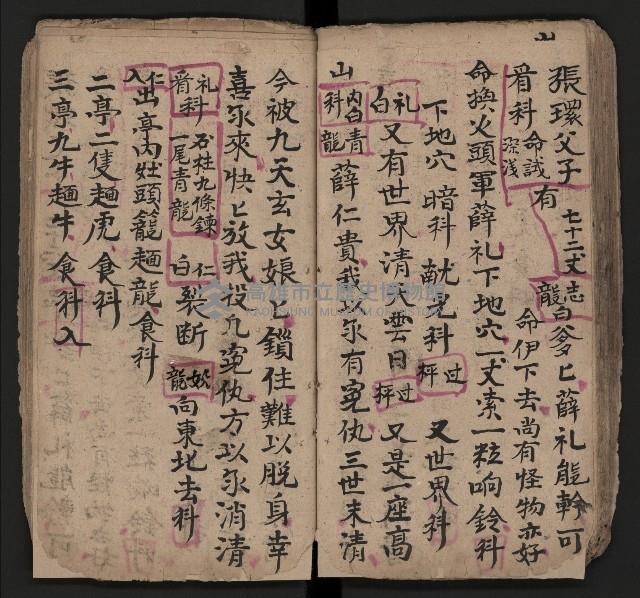 張環父子有七十二丈志龍白爹匕薛礼能幹可
看科命試深浅命伊下去尚有怪物亦好
命換火頭軍薛礼下地穴一丈索一粒响鈴科
下地穴暗科 献光科过枰又世界科
礼白又有世界清天雲日过枰又是一座高
山內白科青龍薛仁貴我汆有寃仇三世未清
今被九天玄女娘匕鎖住難以脱身幸
喜汆來快匕放我投凡寃仇方以汆消清
礼看科石柱九條鍊一尾青龍仁白裂断龍向東北去科
仁入出亭內灶頭籠麺龍食科
二亭二隻麺虎食科
三亭九牛麺牛食科入
高雄市立歷史博物館
KAOHSIUNG MUSEUM OF HISTORY